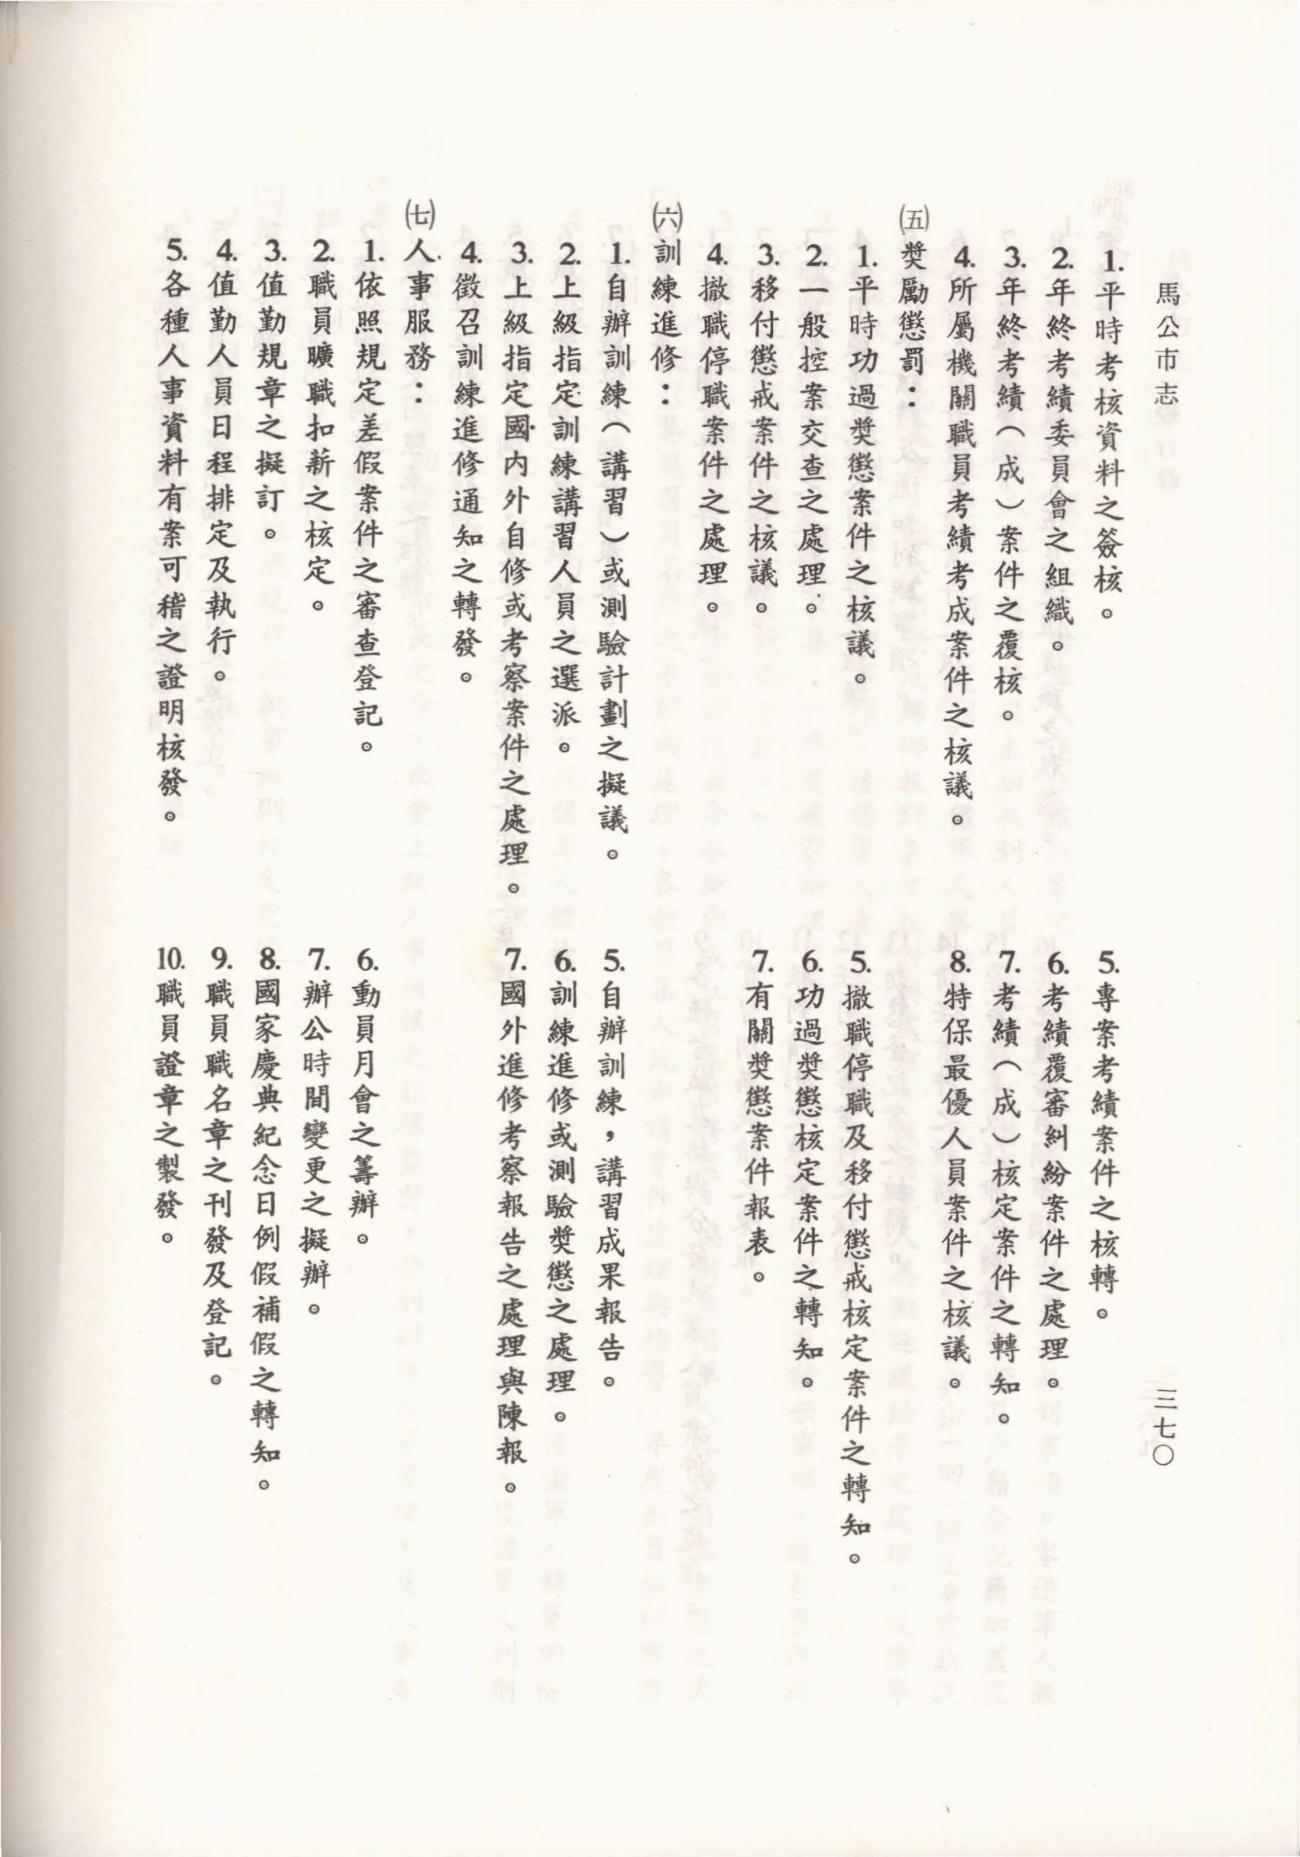 馬公市志
三七〇
1.平時考核資料之簽核。
2.年終考績委員會之組織。
3.年終考績（成）案件之覆核。
4.所屬機關職員考績考成案件之核議。
5.專案考績案件之核轉。
6.考績覆審糾紛案件之處理。
7.考績（成）核定案件之轉知。
8.特保最優人員案件之核議。
㈤獎勵懲罰：
1.平時功過獎懲案件之核議。
2.一般控案交查之處理。
3.移付懲戒案件之核議。
4.撤職停職案件之處理。
5.撤職停職及移付懲戒核定案件之轉知。
6.功過獎懲核定案件之轉知。
7.有關獎懲案件報表。
㈥訓練進修：
1.自辦訓練（講習）或測驗計劃之擬議。
2.上級指定訓練講習人員之選派。
3.上級指定國內外自修或考察案件之處理。
4.徵召訓練進修通知之轉發。
5.自辦訓練，講習成果報告。
6.訓練進修或測驗獎懲之處理。
7.國外進修考察報告之處理與陳報。
㈦人事服務：
1.依照規定差假案件之審查登記。
2.職員曠職扣薪之核定。
3.值勤規章之擬訂。
4.值勤人員日程排定及執行。
5.各種人事資料有案可稽之證明核發。
6.動員月會之籌辦。
7.辦公時間變更之擬辦。
8.國家慶典紀念日例假補假之轉知。
9.職員職名章之刊發及登記。
10.職員證章之製發。